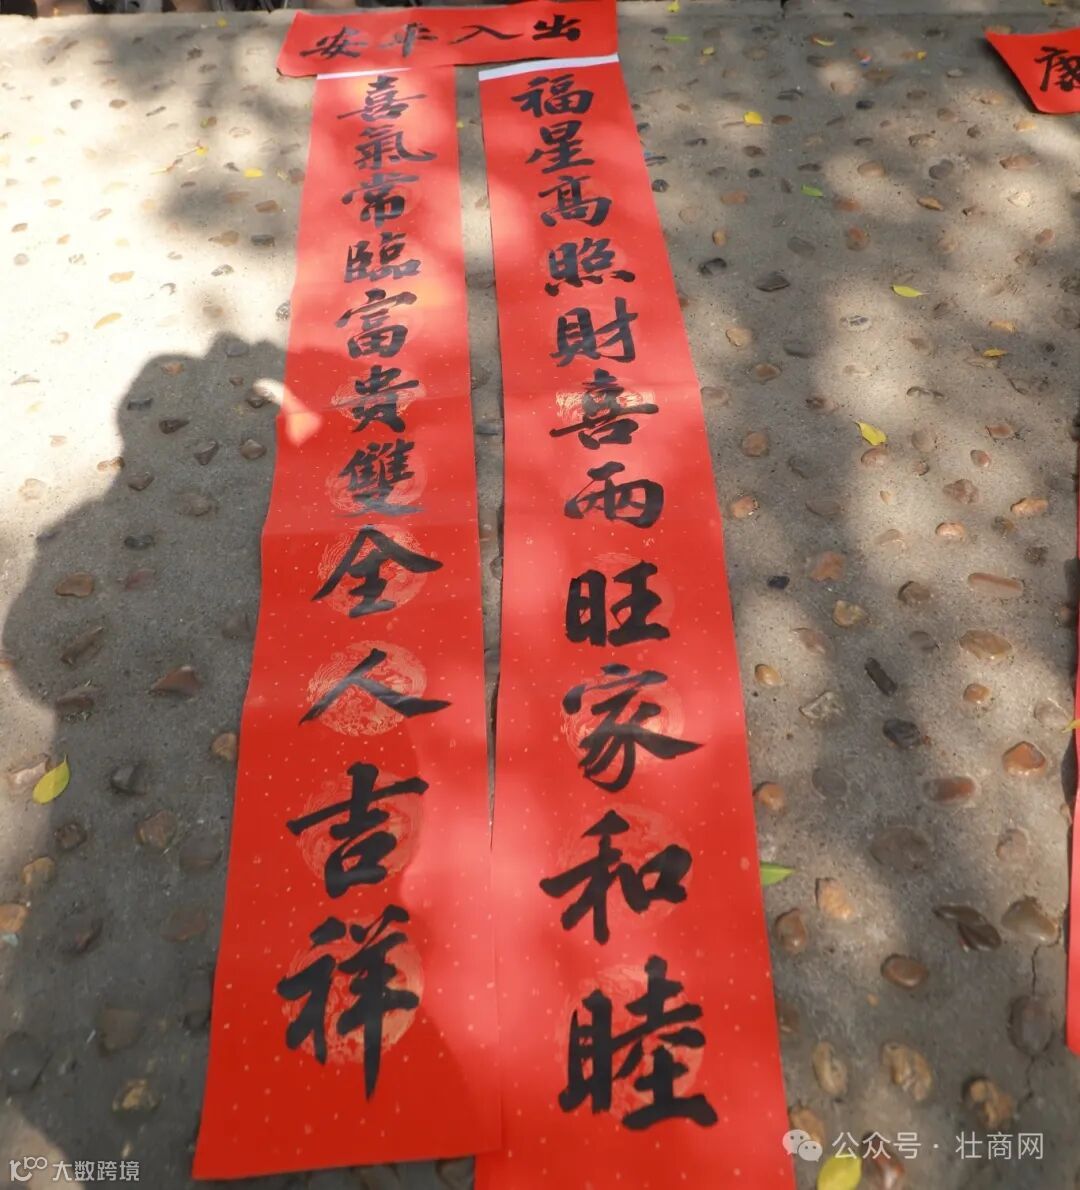 出入平安
福星高照財喜兩旺家和睦
喜氣常臨富貴雙全人吉祥
康
公众号·壮商网
大数跨境